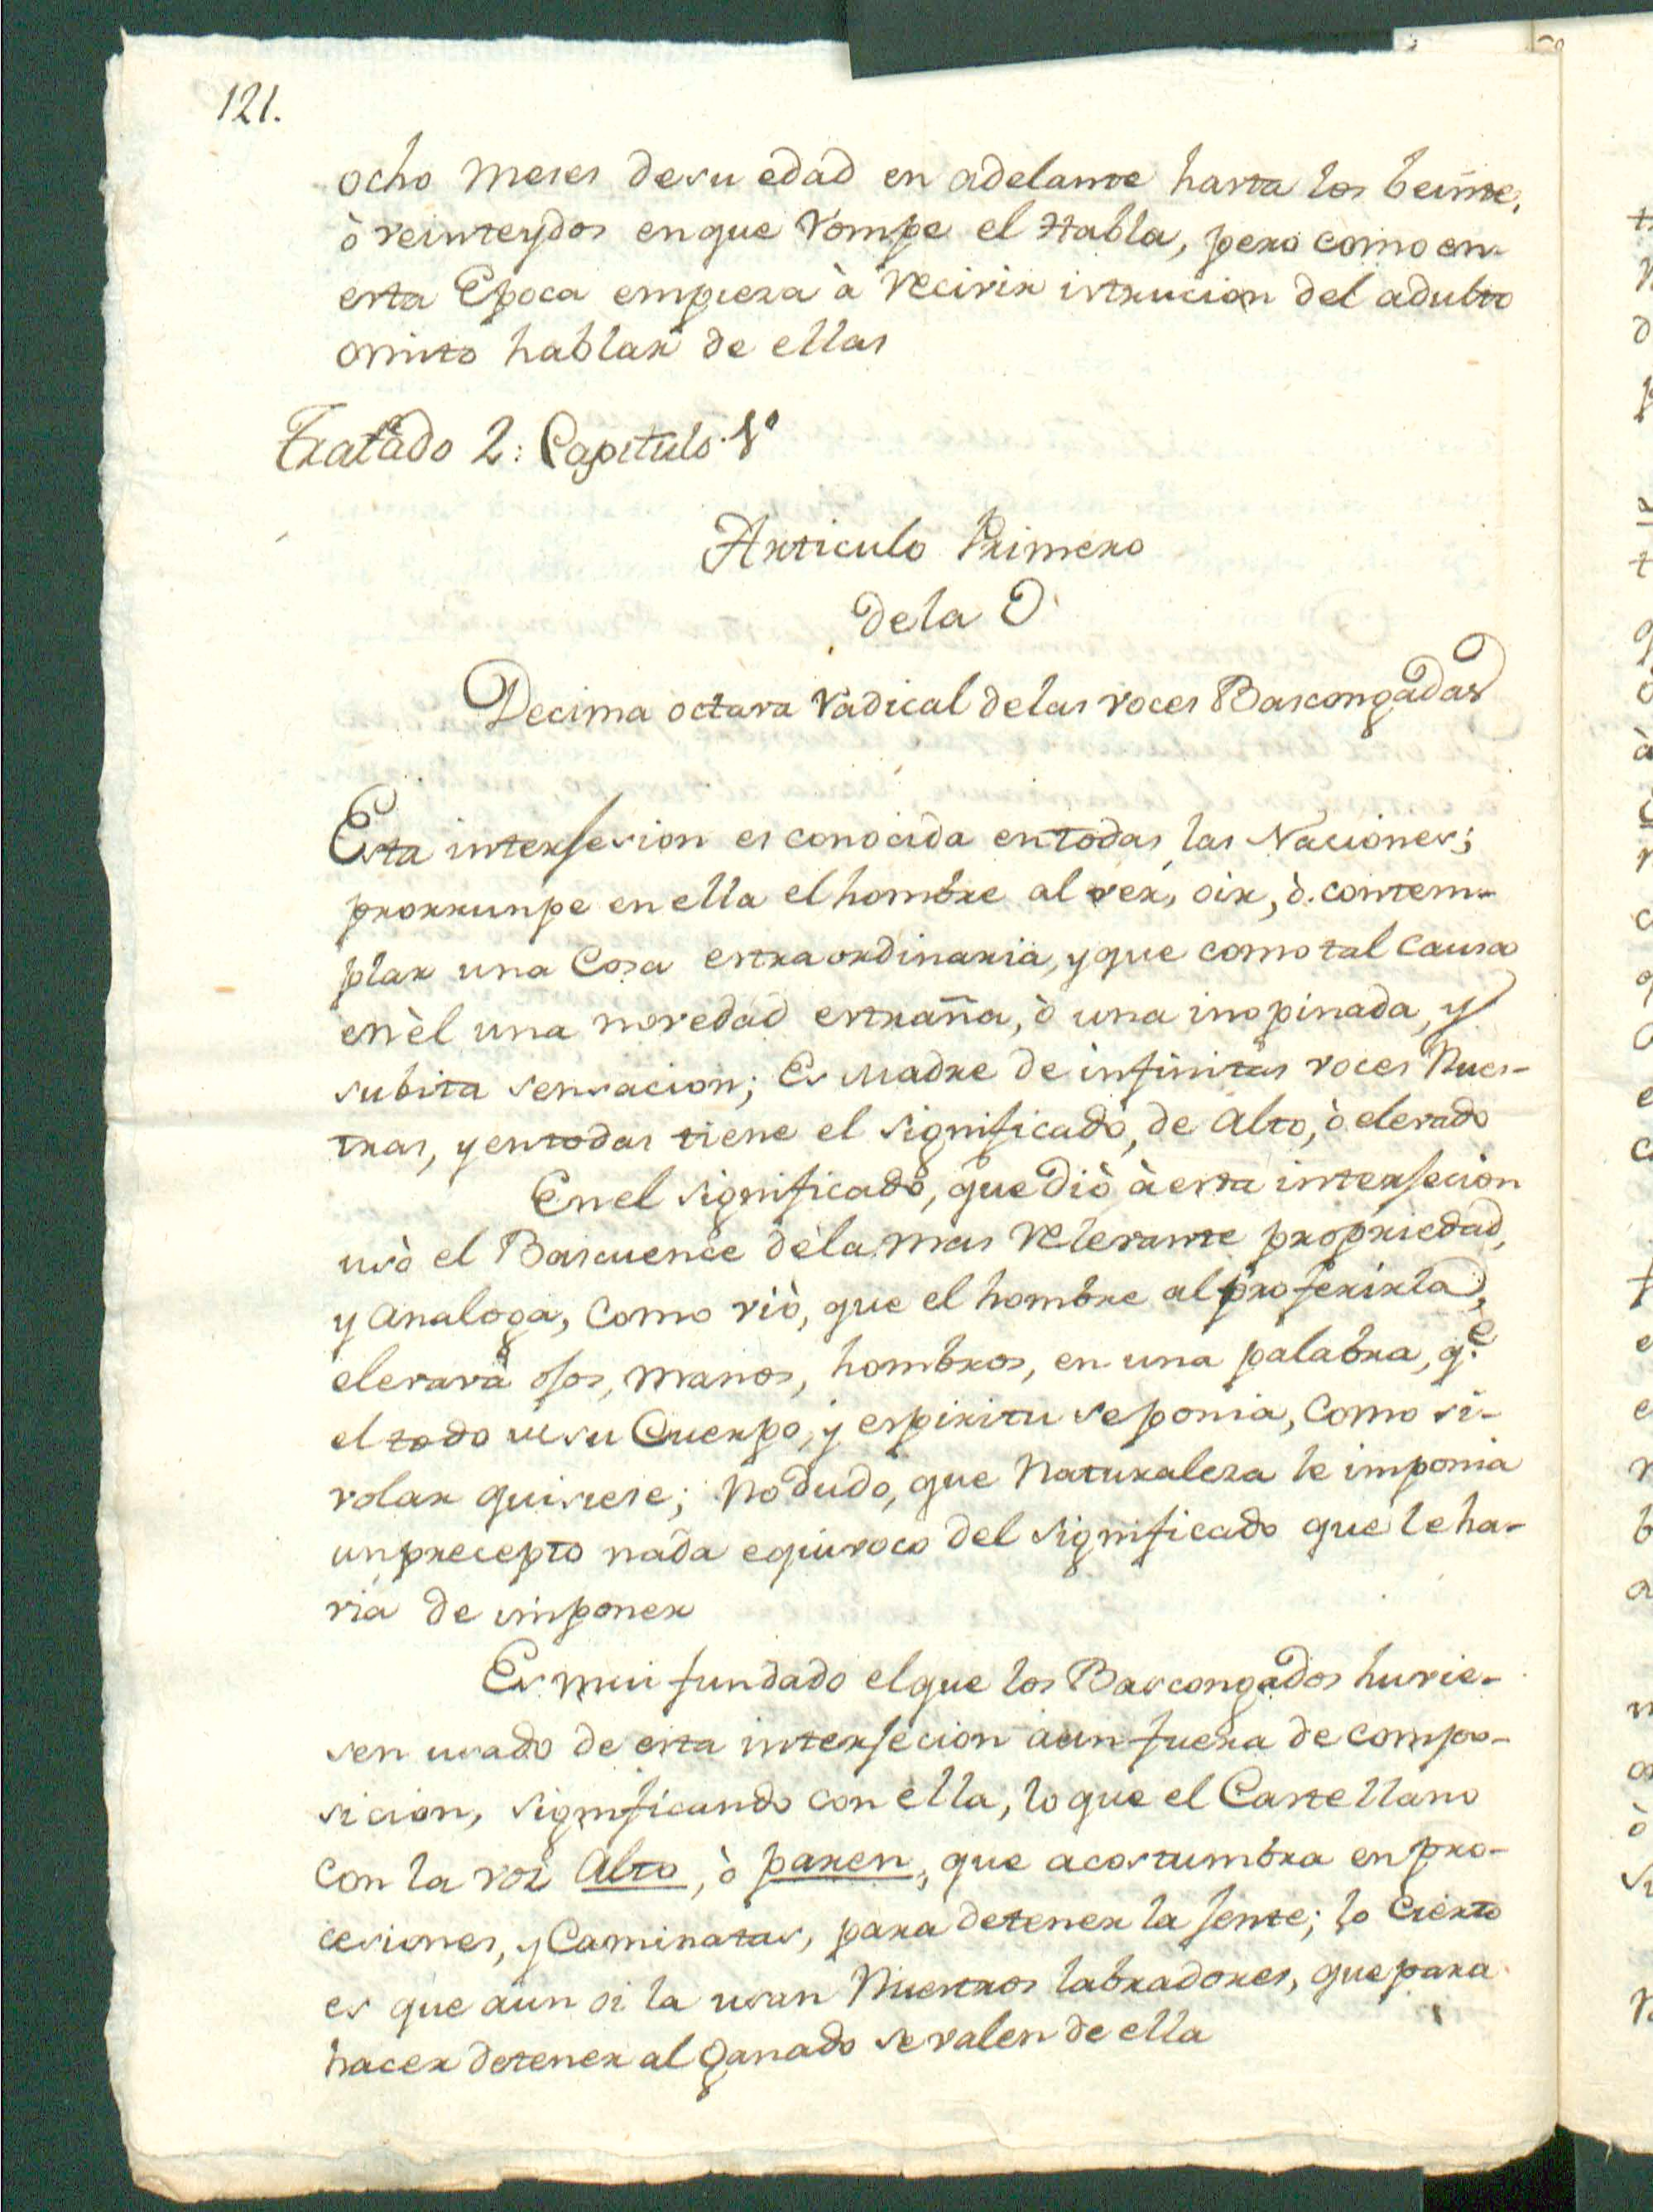 121.
ocho meses desu edad en adelante hasta los beinte,
ò veinteydos enque rompe el Habla, pero como en-
esta Epoca empieza à recivir istrucion del adulto
omito hablar de ellas
Tratado 2: Capitulo. 1º
Articulo Primero
dela O
Decima octava radical delas voces Bascongadas
Esta interjesion es conocida entodas las Naciones;
prorrunpe en ella el hombre al ver, oir, ò contem-
plar una Cosa estraordinaria, y que como tal causa
en èl una novedad estraña, ò una inopinada, y
subita sensacion; Es Madre de infinitas voces Nues-
tras, y entodas tiene el significado, de Alto, ò elevado
En el significado, que diò à esta interjecion
usò el Bascuence dela mas relevante propriedad,
y analoga, como viò, que el hombre al proferirla,
elevava ojos, manos, hombros, en una palabra, q.e
el todo de su Cuerpo, y espiritu se ponia, como si-
volar quisiese; No dudo, que Naturaleza le imponia
un precepto nada equivoco del significado que le ha-
via de imponer
Es mui fundado el que los Bascongados huvie-
sen usado de esta interjecion aun fuera de compo-
sicion, significando con ella, lo que el Castellano
con la voz Alto, ò paren, que acostumbra en pro-
cesiones, y Caminatas, para detener la jente; lo Cierto
es que aun oi la usan Nuestros labradores, que para
hacer detener al Ganado se valen de ella